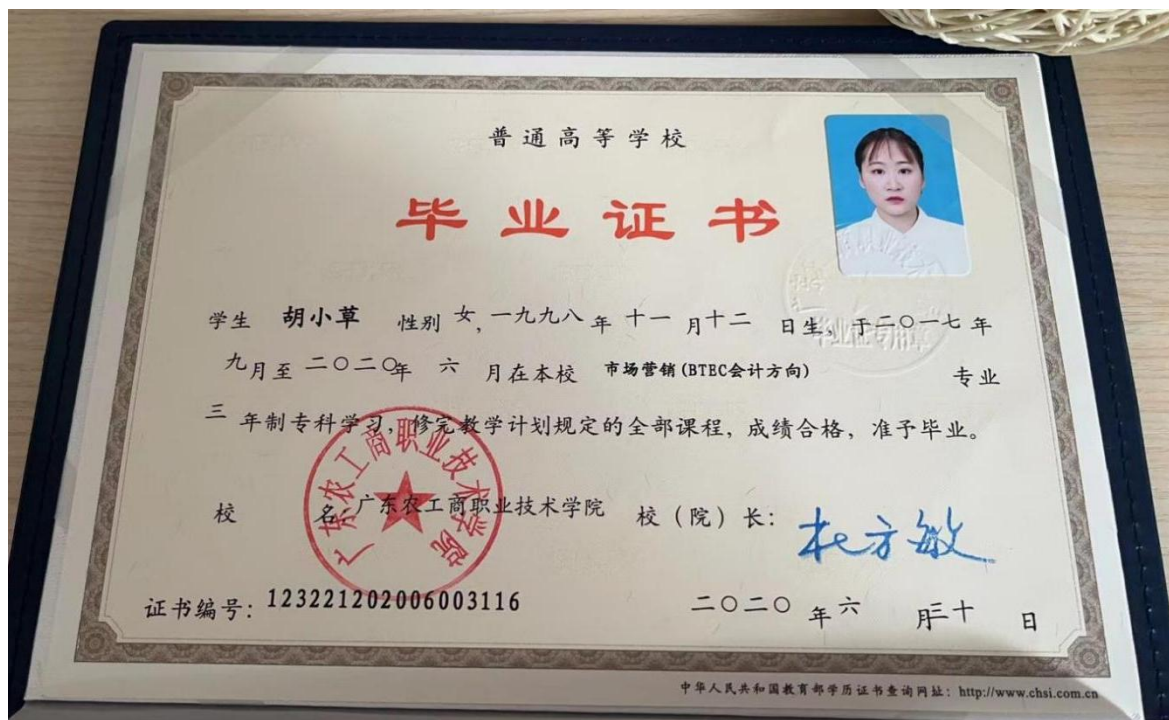 普通高等学校
毕业证书
学生 胡小草 性别 女,一九九八 年 十一 月十二 日生,于二〇一七 年
九月至 二〇二〇年 六 月在本校 市场营销(BTEC会计方向) 专业
三 年制专科学习,修完教学计划规定的全部课程,成绩合格,准予毕业。
校 名:广东农工商职业技术学院 校(院)长:杜方敏
广东农工商职业技术学院
证书编号:123221202006003116 二〇二〇 年 六 月三十 日
中华人民共和国教育部学历证书查询网址:http://www.chsi.com.cn
毕业证专用章